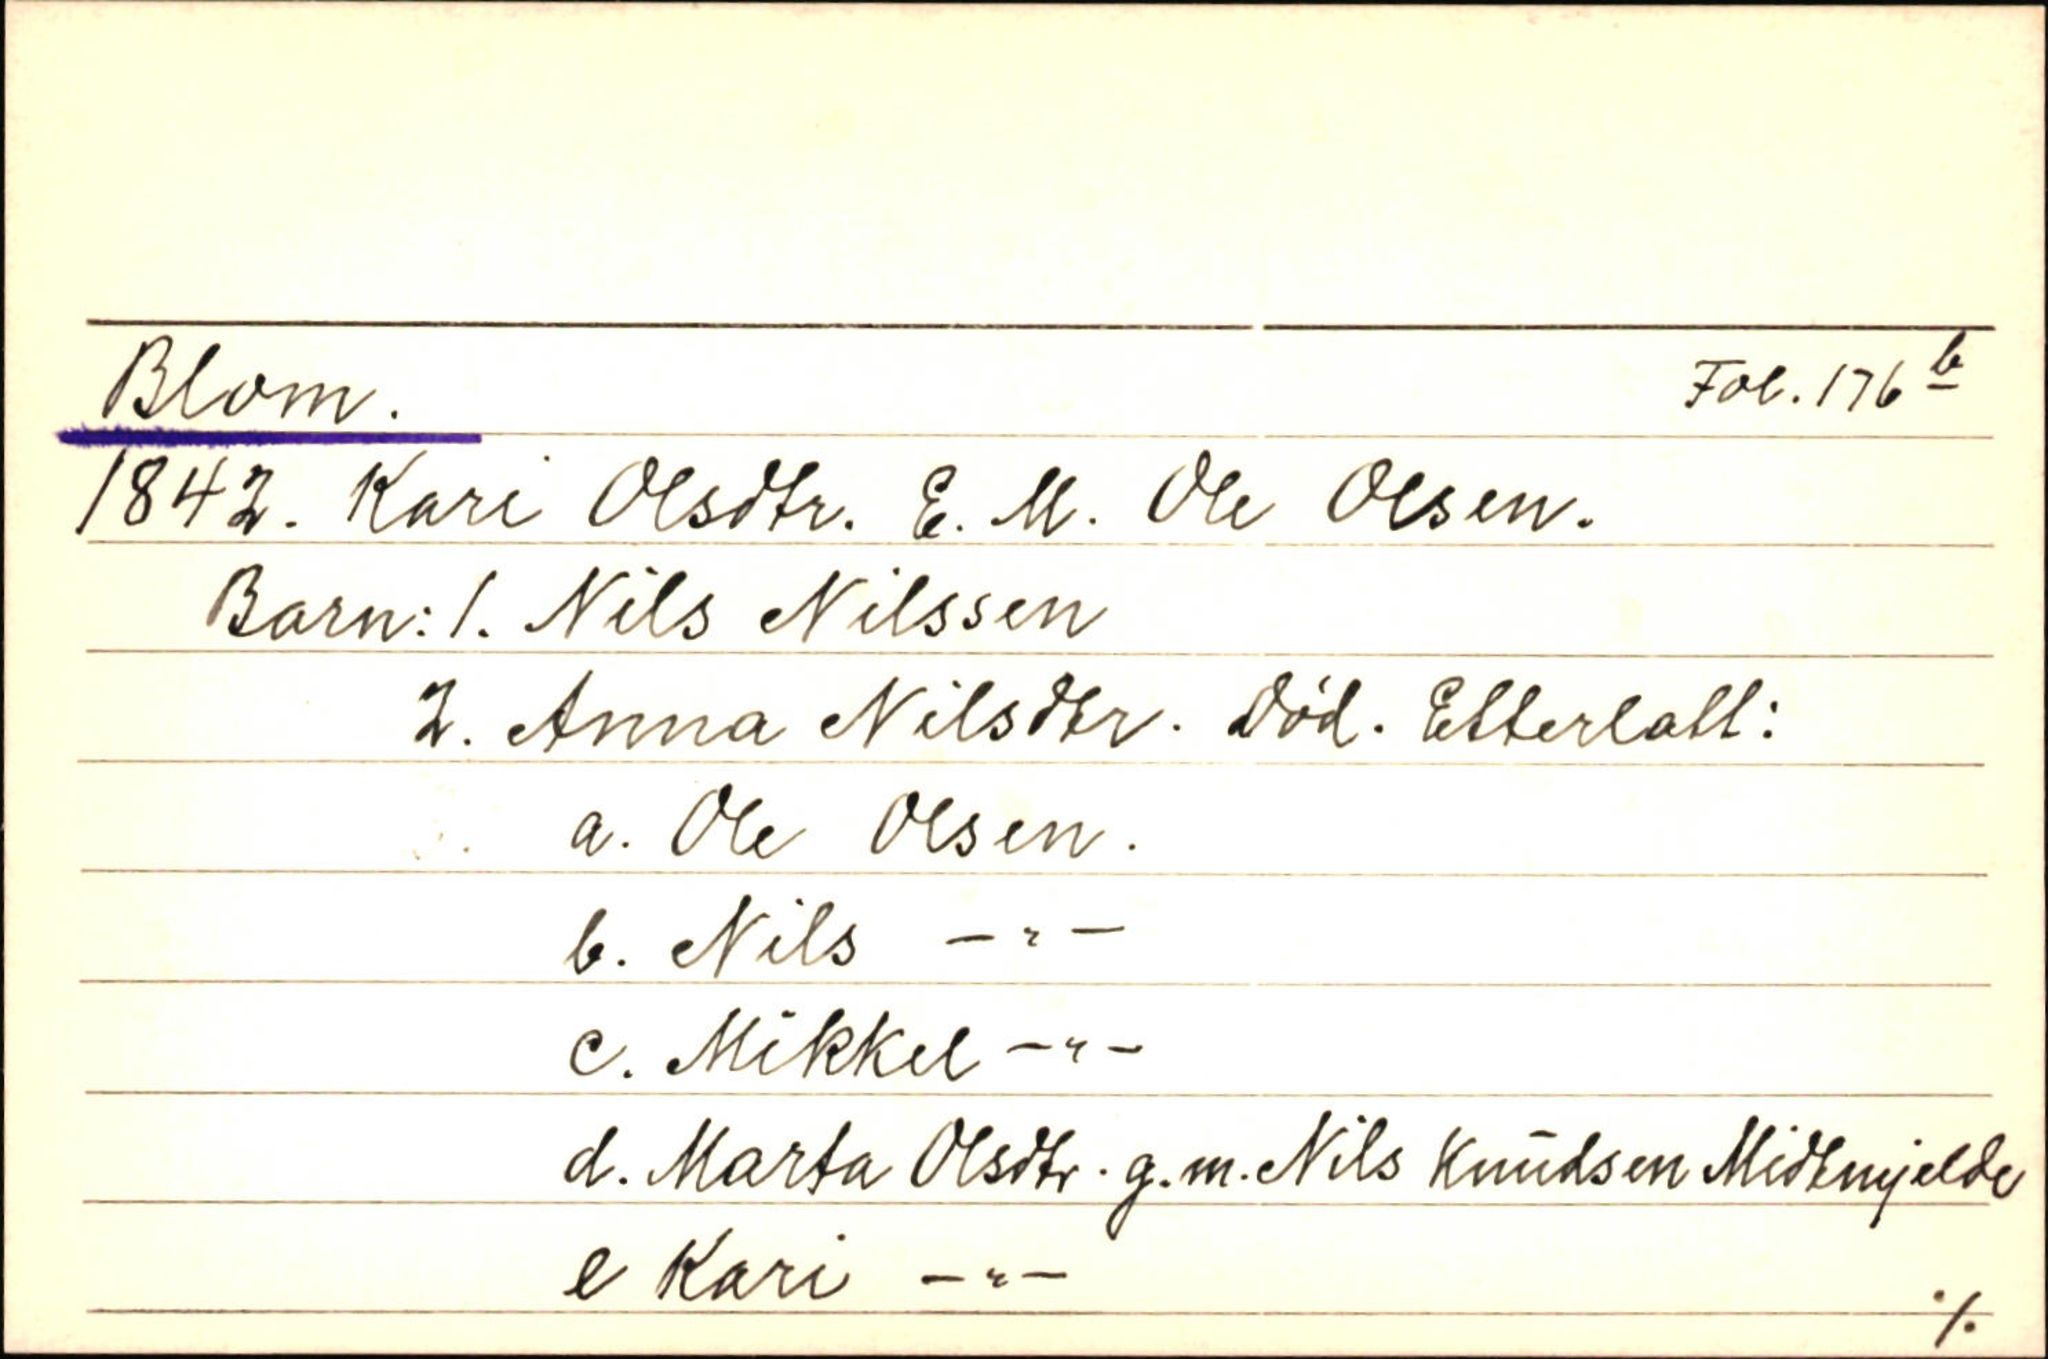 Blom. Fol. 176 b
1842. Kari Olsdtr. E. M. Ole Olsen.
Barn: 1. Nils Nilssen
2. Anna Nilsdtr. Död. Etterlatt:
a. Ole Olsen.
b. Nils -"-
c. Mikkel -"-
d. Marta Olsdtr. g.m. Nils Knudsen Midtmjelde
e Kari -"-
./.